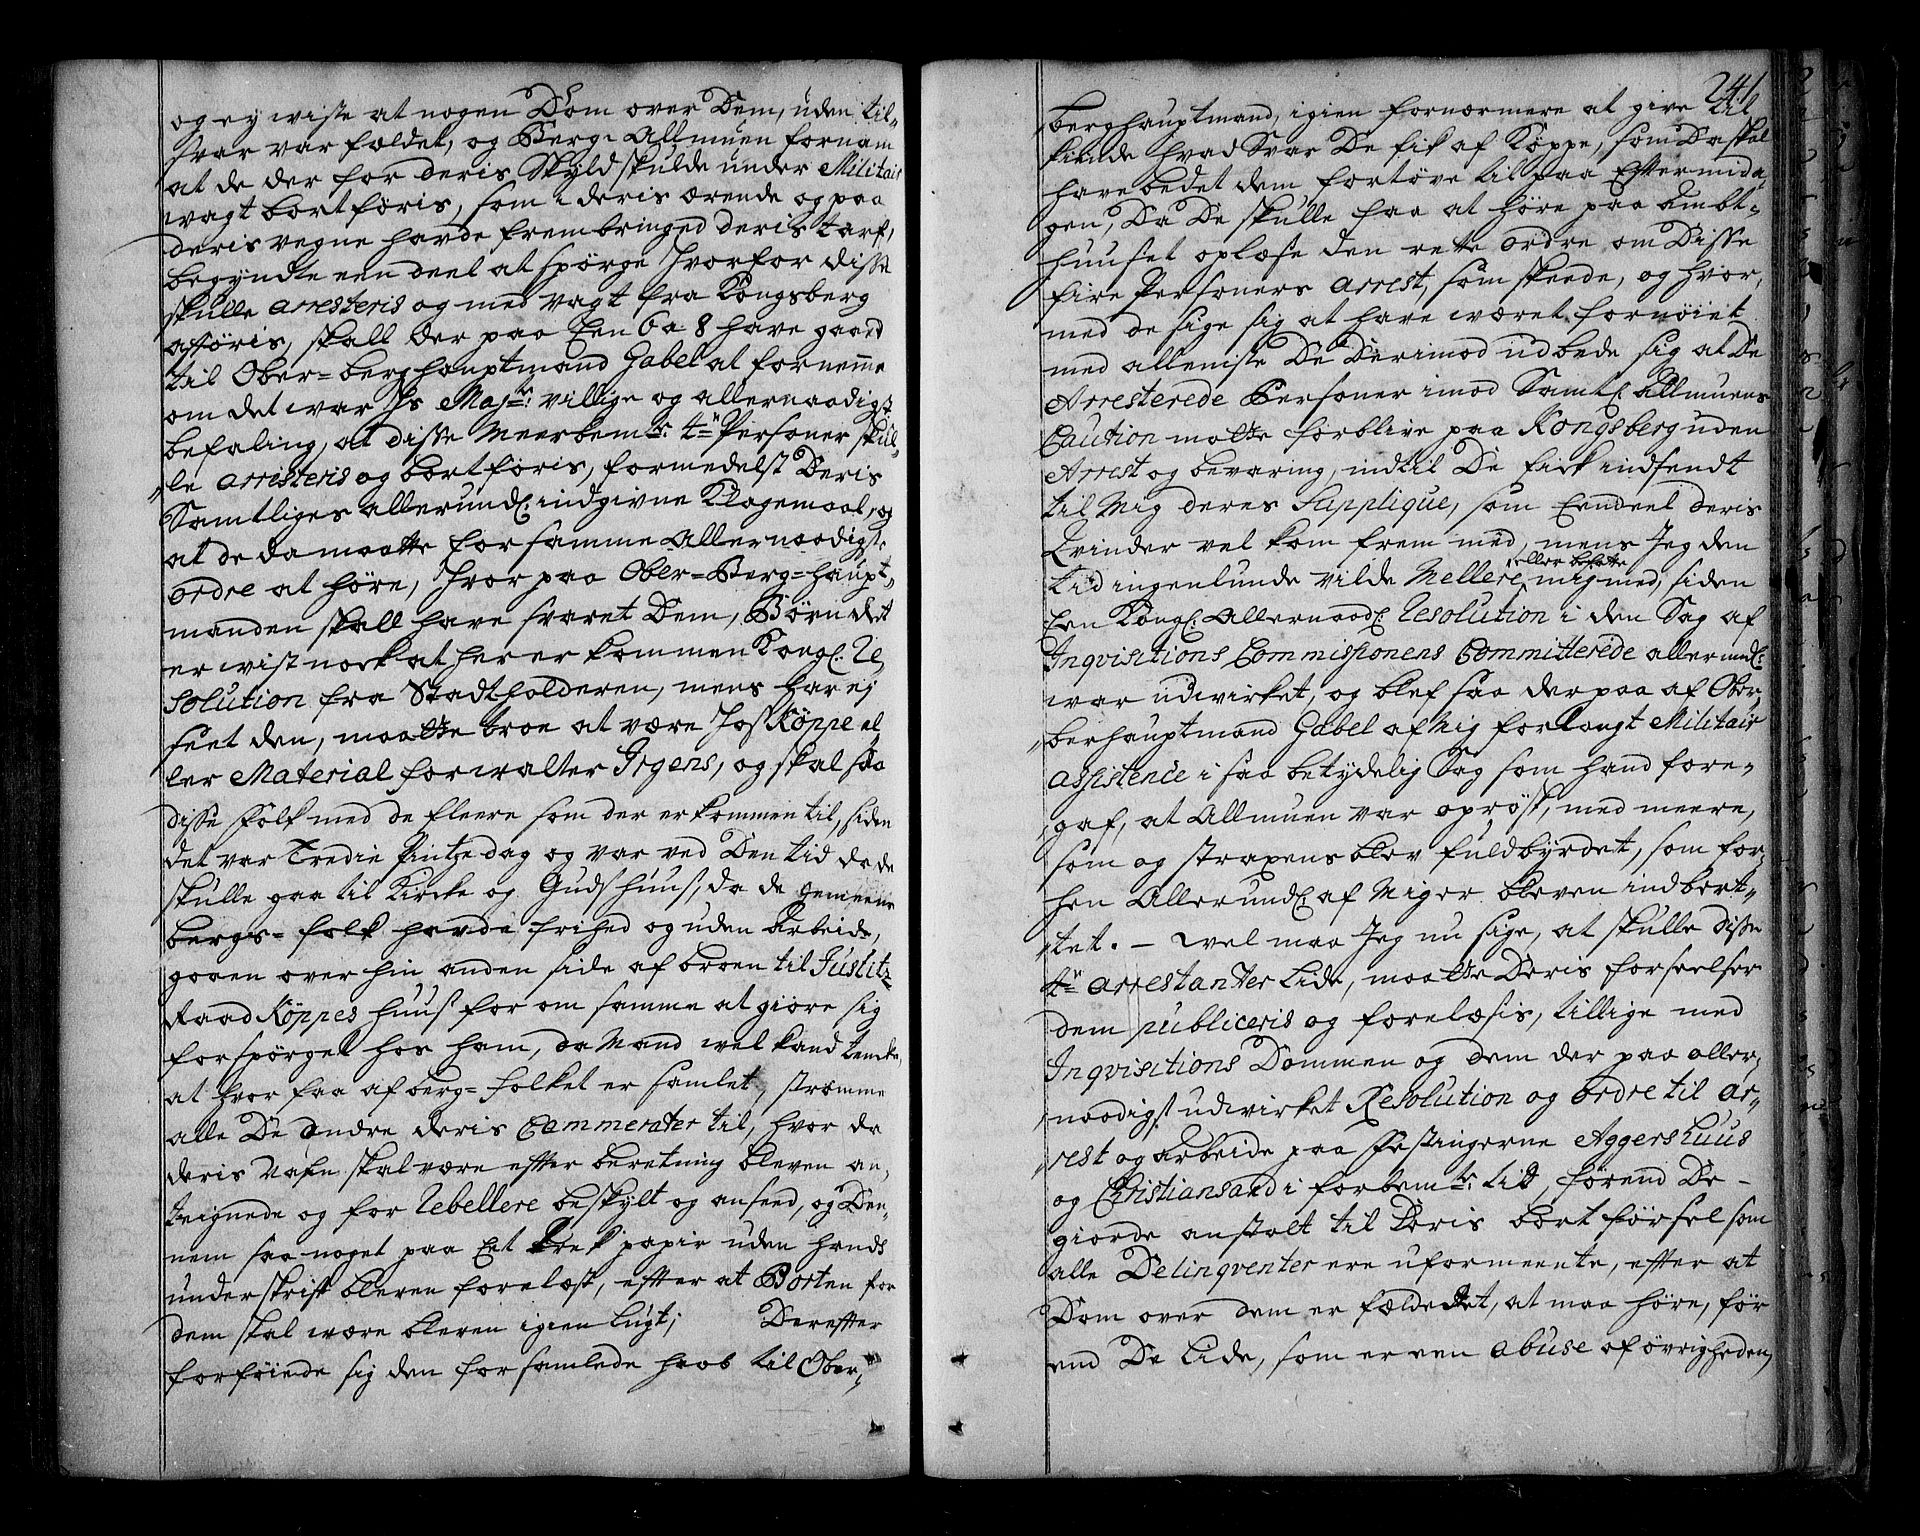 og ey wiste at nogen Dom over Dem, uden til-
svar var fældet, og Berg-Allmuen fornam
at de der for deris Skyld skulde under Militair
vagt bortføris, som i deris ærende og paa
deris vegne havde frembringed deris tarf,
begyndte een deel at spörge hvorfor disse
skulle arresteris og med vagt fra Kongsberg
afföris, skall der paa Een 6 a 8 have gaaed
til Ober-berghauptmand Gabel at fornemme
om det war Hs Majts: villige og allernaadigst
befaling, at disse Meerbemte: 4re Personer skul-
le arresteris og bortföris, formedelst Deris
Samtliges allerundl: indgivne Klagemaal, og
at de da maatte for samme Allernaadigste
ordre at höre, hvor paa Ober-Berg-haupt-
manden skall have svaret Dem, Börn det
er wist nock at her er kommen Kongl: Re-
solution fra Stadtholderen, mens har ej
seet den, maatte troe at være Hos Köppe el-
ler Material forwalter Irgens, og skal saa
disse Folk med de fleere som der er kommen til, siden
det var Tredie Pintzedag og var ved Den tid da de
skulle gaa til Kircke og Guds huus, da de gemeene
bergs-folk havde frihed og uden Arbeide,
gaaen over hin anden side af broen til Justitz-
Raad Köppes huus for om samme at giöre sig
forspörget hos ham, da Mand wel kand tencke,
at hvor faa af berg-folket er samlet, strømme
alle De andre deris Cammerater til, hvor da
deris Nafn skal være effter beretning bleven an-
teignede og for Rebellere beskylt og anseed, og Den-
nem saa noget paa Eet Stök papir uden hands
underskrift bleven forelæst, effter at Porten for
dem skal wære bleven igien lugt; Dereffter
forföiede sig den forsamlede hob til Ober-
241
berghauptmand, igien fornermere at give til
kiende hvad Svar De fik af Köppe, som Da skal
have bedet dem fortöve til paa Efftermida-
gen, Da De skulle faa at höre paa Ambt-
huuset oplæse den rette ordre om Disse
fire Personers Arrest, som skeede, og hvor-
med de sige sig at have wæret fornöiet
med alleniste De Derimod udbede sig at De
Arresterede Personer imod Samtl: Allmuens
Caution maatte forblive paa Kongsberg uden
Arrest og bevaring, indtil De fick indsendt
til Mig deres Supplique, som Eendeel deris
Qvinder vel kom frem med, mens Jeg den
tid ingenlunde vilde Mellere eller befatte mig med, siden
Een Kongl: Allernaadl: Resolution i den Sag af
Inqvisitions Commissionens Committerede allerundl:
war udvirket, og blef saa derpaa af Ober-
berhauptmand Gabel af Mig forlangt Militair
assistence i saa betydelig Sag som hand fore-
gaf, at Allmuen var oprösk, med meere,
som og strapens blev fuldbyrdet, som for-
hen Allerundl: af Mig er bleven indberet-
tet. - Wel maa Jeg nu sige, at skulle disse
4re arrestanter lide, maatte Deris forseelser
dem publiceris og forelæsis, tillige med
Inqvisitions Dommen og dem der paa aller-
naadigst udvirket Resolution og ordre til Ar-
rest og arbeide paa Festingerne Aggershuus
og Christiansand i forbemte: tid, förend De
giorde anstalt til Deris bort försel som
alle Delinqventer ere uformeente, effter at
Dom over dem er fældedet, at maa höre, för
end De lide, som er een abuse af övrigheden,